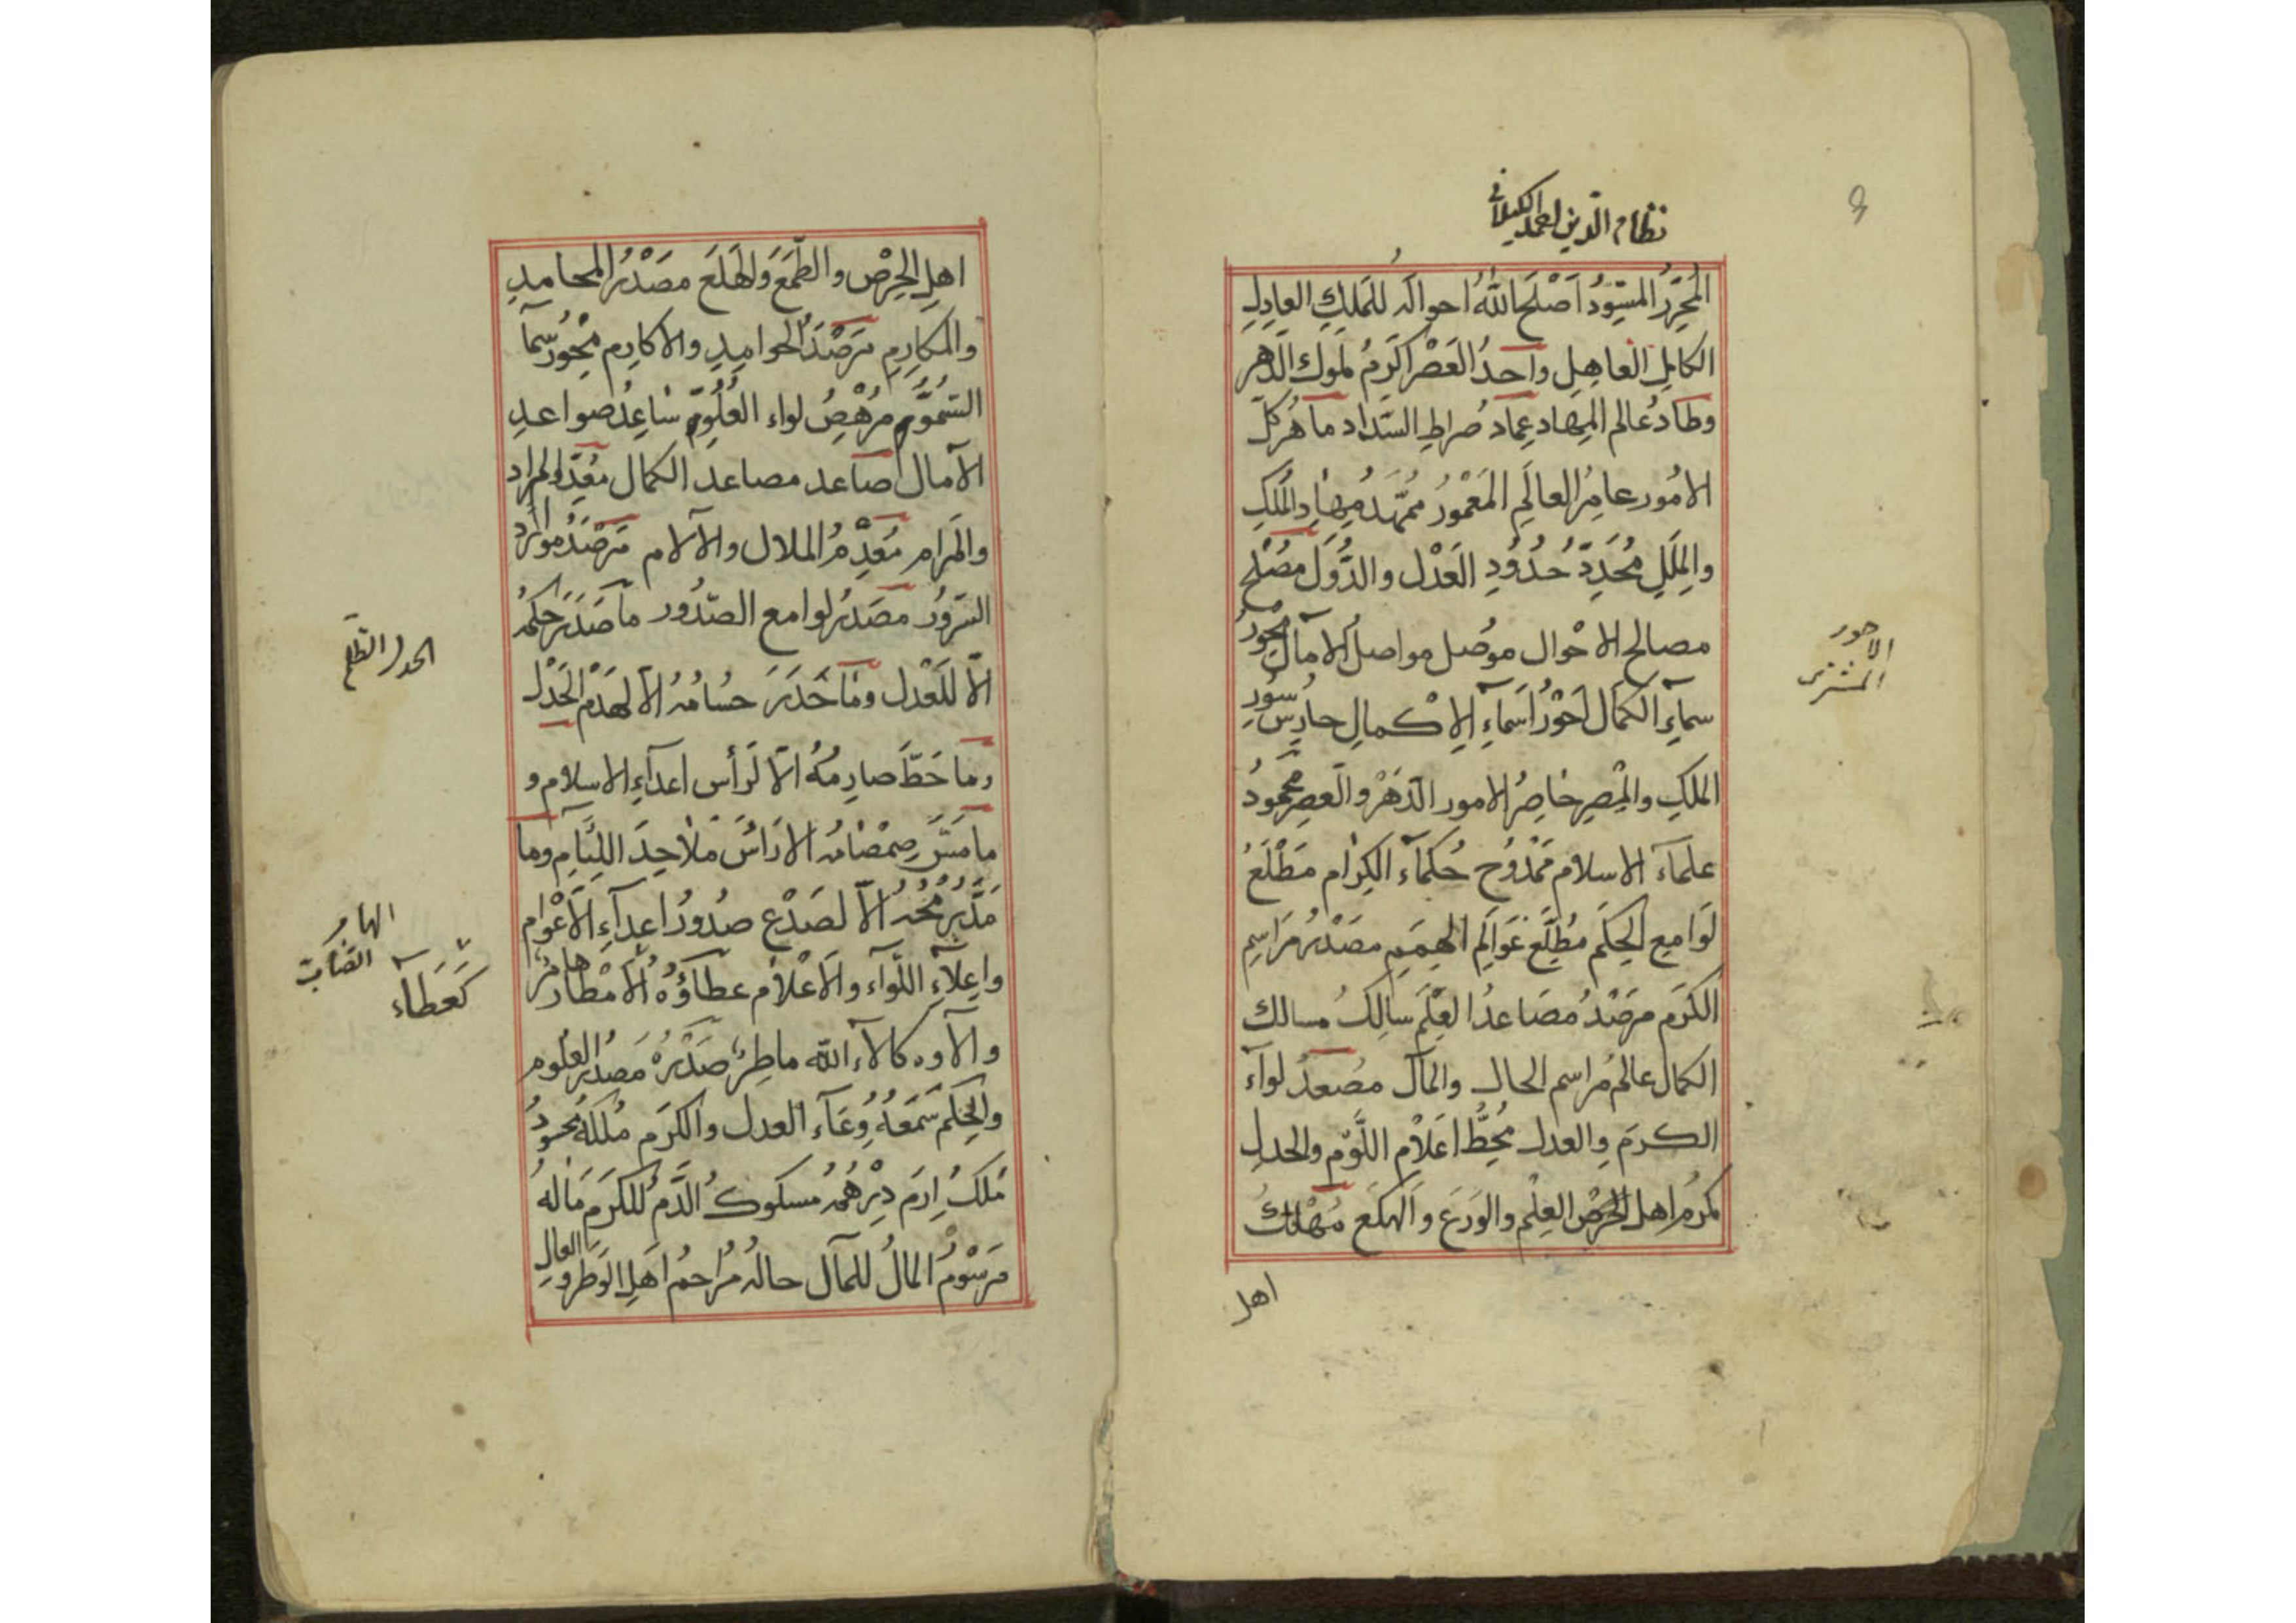 نظام الدين احمد الكيلاني
المحرر المسود اصلح الله احواله للملك العادل
الكامل العاهل واحد العصر اكرم ملوك الدهر
وطاد عالم المهاد عماد صراط السداد ماهر كل
الامور عامر العالم المعمور ممهد مهاد الملك
والملل محدد حدود العدل والدول مصلح
مصالح الاحوال موصل مواصل الامآل محور
سماء الكمال احور اسماء الاكمال حارس سور
الملك والمصر حاصر الامور الدهر والعصر محمود
علماء الاسلام ممدوح حكماء الكرام مطلع
لوامع الحكم مطلع عوالم الهمم مصدر مراسم
الكرم مرصد مصاعد العلم سالك مسالك
الكمال عالم مراسم الحال والمآل مصعد لواء
الكرم والعدل محط اعلام اللوم والحدل
مكرم اهل العلم والورع والهكع مهلك
اهل
الاحور
المشترى
اهل الحرص والطمع والهلع مصدر المحامد
والمكارم مرصد الحوامد والاكارم محور سماء
السمو مرهص لواء العلو ساعد صواعد
الآمال صاعد مصاعد الكمال معد المراد
والمرام معدم الملال والآلام مرصد موارد
السرور مصدر لوامع الصدور ما صدر حكمه
الا للعدل وما حدر حسامه الا لهدم الحدل
وما حط صارمه الا لرأس اعداء الاسلام و
ما مس صمصامه الا رأس ملاحد اللئام وما
الا لصدع صدور اعداء الاعوام
واعلاء اللواء والاعلام عطاؤه الامطار هامر
وآلاؤه كآلاء الله ماطر صدره مصدر العلوم
والحكم سمعه وعاء العدل والكرم ملكه محسود
ملك ارم درهمه مسكوك الدم للكرم ماله
مرسوم المال للمآل حاله مراحم اهل الوطر و العال
الحدل الظلم
الهامر
كعطاء